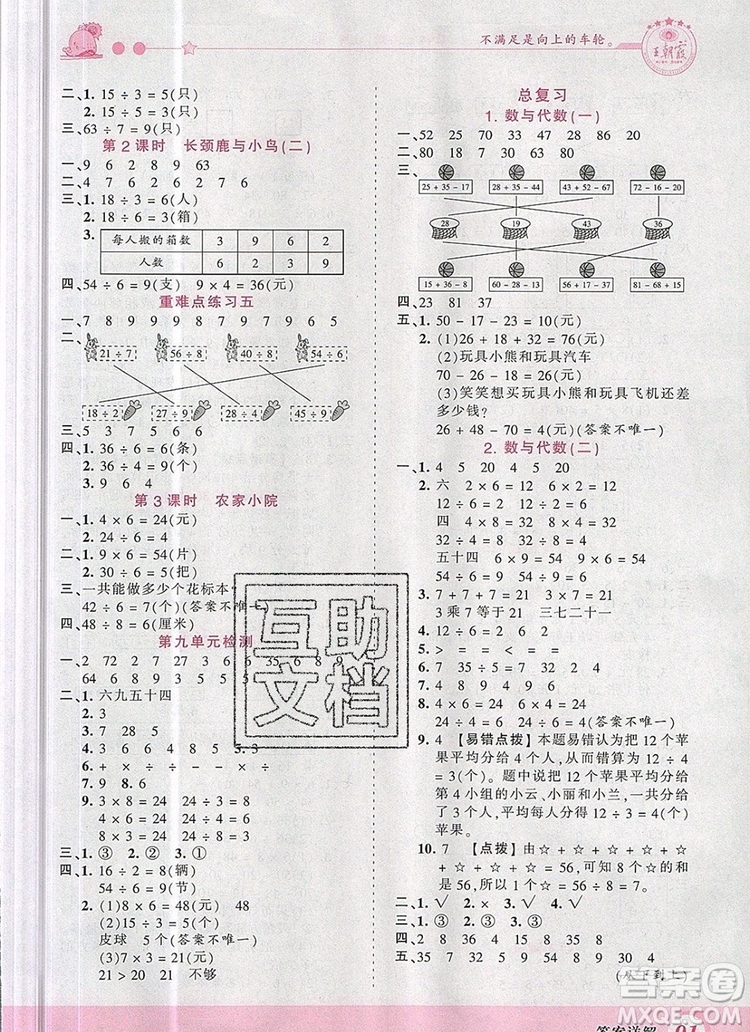 不满足是向上的车轮。
王朝霞
二、1. 15 ÷ 3 = 5(只)
2. 15 ÷ 5 = 3(只)
三、63 ÷ 7 = 9(只)
第2课时 长颈鹿与小鸟(二)
一、9 6 2 8 9 63
二、7 4 7 6 2 6 7 8
三、1. 18 ÷ 3 = 6(人)
2. 18 ÷ 3 = 6(箱)
3. 每人搬的箱数 3 9 6 2
人数 6 2 3 9
四、54 ÷ 6 = 9(支) 9 × 4 = 36(元)
重难点练习五
一、7 8 9 9 9 8 7 9 7 9 8 9
二、
21 ÷ 7 56 ÷ 8 40 ÷ 8 54 ÷ 6
18 ÷ 2 27 ÷ 9 28 ÷ 4 45 ÷ 9
三、5 3 7 5 6 6
四、1. 36 ÷ 6 = 6(条)
2. 36 ÷ 4 = 9(个)
3. 9 6 4
第3课时 农家小院
一、1. 4 × 6 = 24(元)
2. 24 ÷ 6 = 4
二、1. 9 × 6 = 54(片)
2. 30 ÷ 6 = 5(把)
三、一共能做多少个花标本?
42 ÷ 6 = 7(个)(答案不唯一)
四、48 ÷ 8 = 6(厘米)
第九单元检测
一、2 72 27 2 4
64 6 8 9 3 5 5
二、1. 六九五十四
2. 3
3. 7 28 5
4. 3 6 6 4 8 5
5. 3
6. 2
7. 9 8. 6
9. 3 × 8 = 24 24 ÷ 3 = 8
4 × 6 = 24 24 ÷ 4 = 6
三、1. ③ 2. ② 3. ①
四、1. 16 ÷ 2 = 8(辆)
54 ÷ 6 = 9(节)
2. (1)8 × 6 = 48(元) 48
(2)15 ÷ 3 = 5(个)
皮球 5个(答案不唯一)
(3)7 × 3 = 21(元)
21 > 20 不够
总复习
1. 数与代数(一)
一、52 25 70 33 28 20 86
二、80 18 7 30 73
三、
25 + 35 - 17 28 + 35 - 44 63 + 26 - 61 72 - 16 - 20
28 19 43 36
15 + 36 - 8 52 - 36 + 20 90 - 29 - 33 53 - 42 + 8
四、23 81 37
五、1. 50 - 17 - 23 = 10(元)
2. (1)26 + 18 + 32 = 76(元)
(2)玩具小熊和玩具汽车
70 - 26 - 18 = 26(元)
(3)笑笑想买玩具小熊和玩具飞机还差
多少钱?
26 + 48 - 70 = 4(元)(答案不唯一)
2. 数与代数(二)
一、1. 4 5 20 4 5 20
2. 六 2 × 6 = 12 6 × 2 = 12
12 ÷ 6 = 2 12 ÷ 2 = 6
四 4 × 8 = 32 8 × 4 = 32
32 ÷ 4 = 8 32 ÷ 8 = 4
五十四 6 × 9 = 54 9 × 6 = 54
54 ÷ 6 = 9 54 ÷ 9 = 6
3. 7 + 7 + 7 = 21 3 × 7 = 21
3 乘 7 等于 21 三七二十一
4. 12 ÷ 6 = 2
5. > = < = = <
6. 8 12 3
7. 4 8 4 9 4 9
8. 6 × 4 = 24 4 × 6 = 24
24 ÷ 4 = 6 24 ÷ 6 = 4(答案不唯一)
9. 4 【易错点拨】本题易错认为把 12 个苹
果平均分给 4 个人,列式计算为 12 ÷ 4
= 3(个)。题中说的是把 12 个苹果平均分给
第 4 小组的小云、小小和小兰,也就是平均分给
3 个人,平均每人应分得 12 ÷ 3 = 4(个)
苹果。
10. 7 【点拨】由☆ + ☆ + ☆ + ☆ + ☆
+ ☆ + ☆ + ☆ = 56,可知 8 个☆是
56,所以☆ = 56 ÷ 8 = 7。
二、1. √ 2. × 3. × 4. √
三、1. ③ 2. ③ 3. ①
四、2 8 4 9 8 6 3
五、35 7 52 9 54 8 9 30 4
(从下到上)
答案详解 91
互助文档
答案圈
MXQE.COM